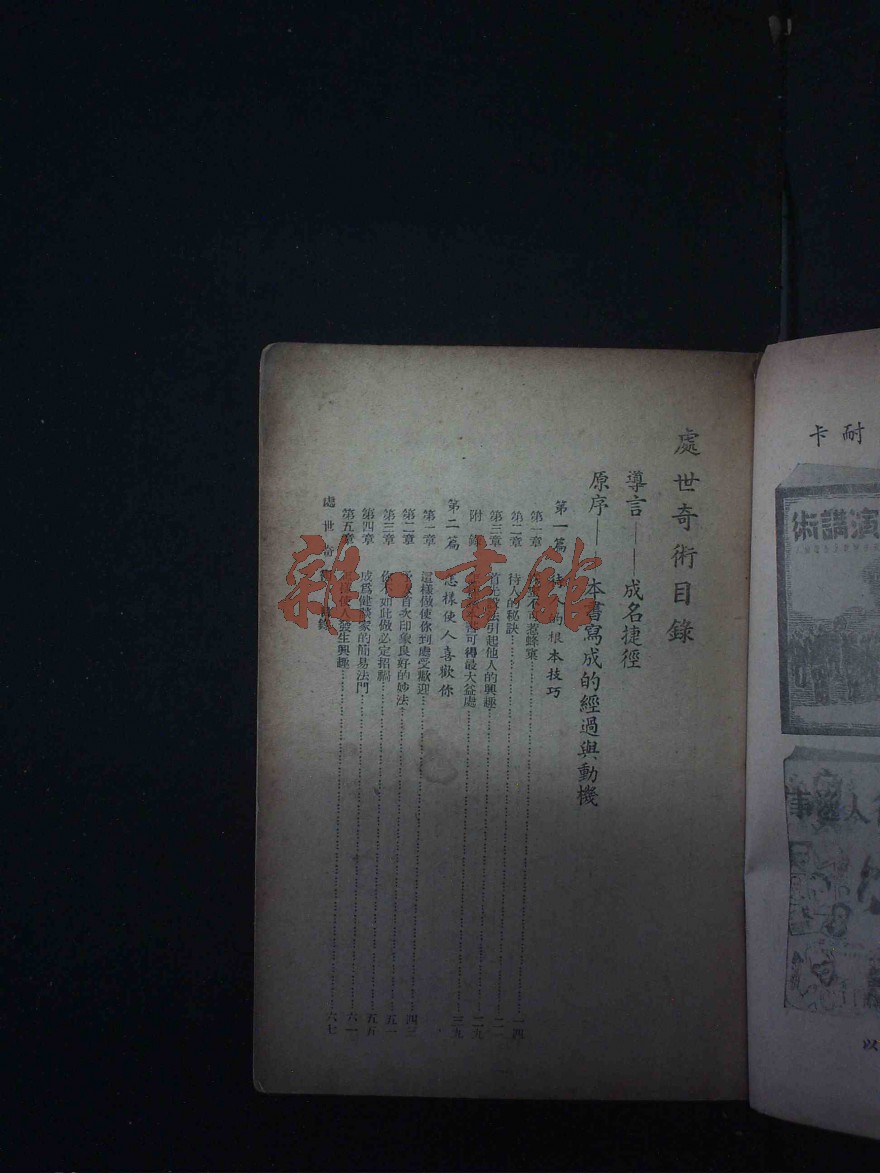 處世奇術目錄
導言——成名捷徑
原序——本書寫成的經過與動機
第一篇 的根本技巧
第一章 不可惹蜂窠 一四
第二章 待人的秘訣
第三章 首先設法引起他人的興趣 二九
附 可得最大益處 三九
第二篇 怎樣使人喜歡你
第一章 這樣做使你到處受歡迎 四三
第二章 首次印象良好的妙法 五一
第三章 如此做必定招禍 五五
第四章 成爲健談家的簡易法門 六一
第五章 使人發生興趣 六七
處世奇
雜·書館
卡耐
演講術
人
事
以